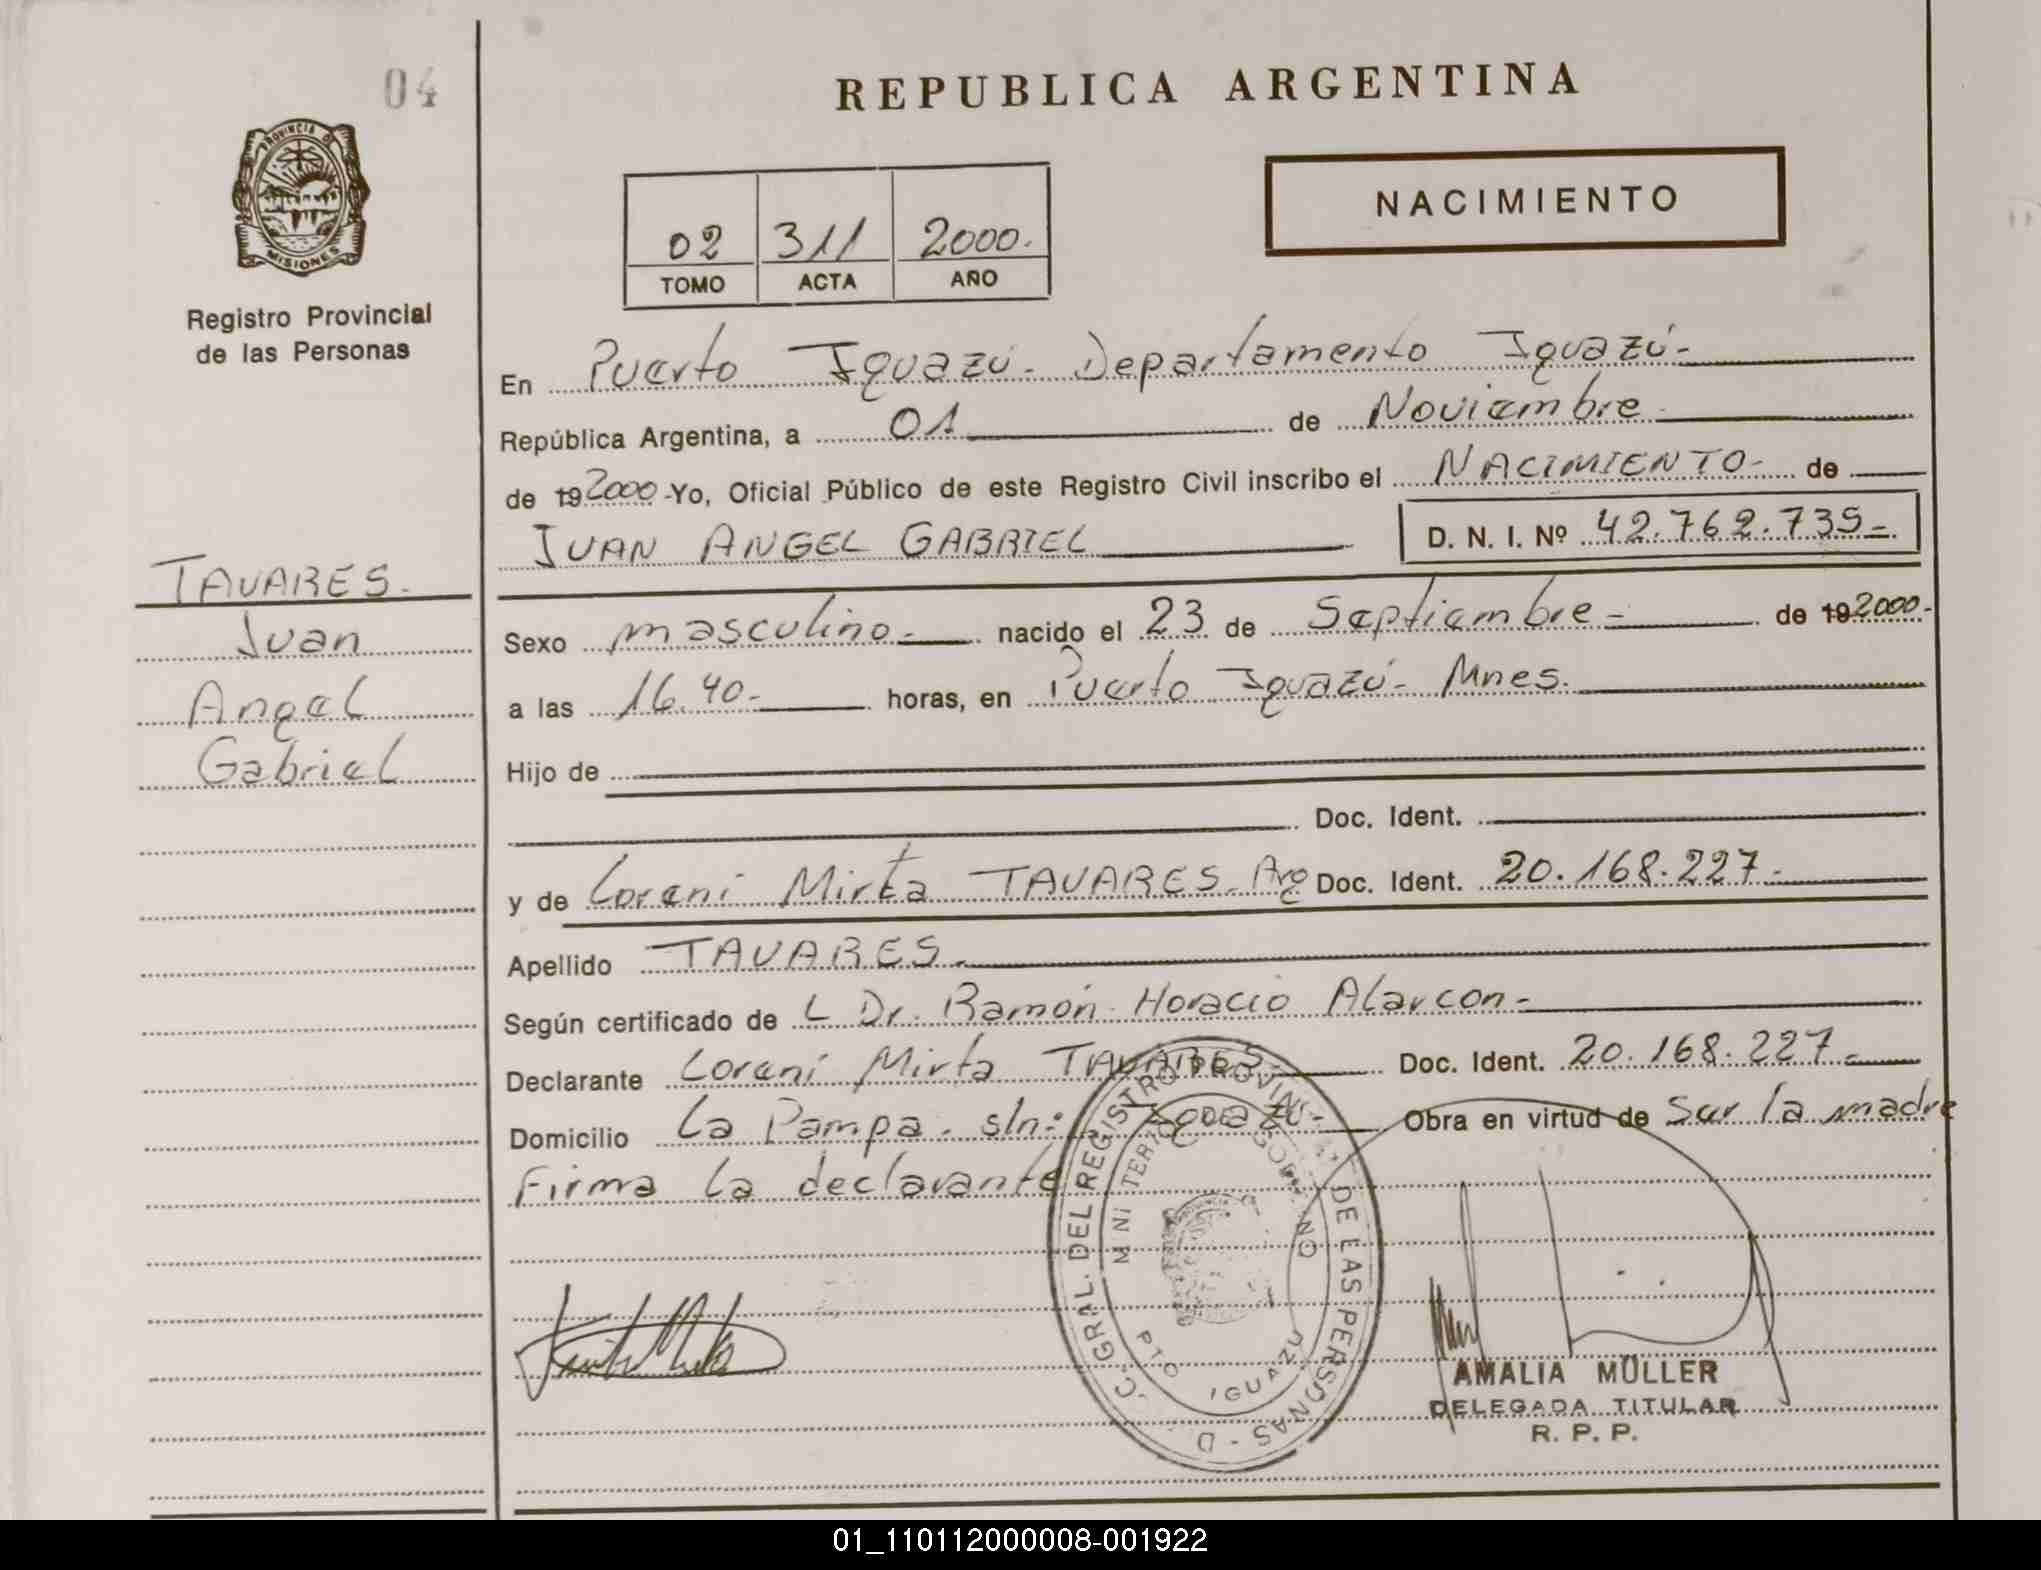 04
REPUBLICA ARGENTINA
PROVINCIA DE
MISIONES
Registro Provincial
de las Personas
02 311 2000.
TOMO ACTA AÑO
NACIMIENTO
En Puerto Iguazú - Departamento Iguazú -
República Argentina, a 01 de Noviembre
de 19 2000 - Yo, Oficial Público de este Registro Civil inscribo el NACIMIENTO - de
JUAN ANGEL GABRIEL D. N. I. Nº 42.762.739 -
TAVARES -
Juan
Angel
Gabriel
Sexo masculino - nacido el 23 de Septiembre - de 19 2000 -
a las 16.40 - horas, en Puerto Iguazú - Mnes.
Hijo de
Doc. Ident.
y de Loreni Mirta TAVARES - Arg Doc. Ident. 20.168.227 -
Apellido TAVARES -
Según certificado de L Dr. Ramón Horacio Alarcon -
Declarante Loreni Mirta TAVARES - Doc. Ident. 20.168.227 -
Domicilio La Pampa. s/n: Iguazú - Obra en virtud de Ser la madre
Firma la declarante
GRAL. DEL REGISTRO PROVIN DE LAS PERSONAS - D
PTO IGUAZU
AMALIA MÜLLER
DELEGADA TITULAR
R. P. P.
01_110112000008-001922